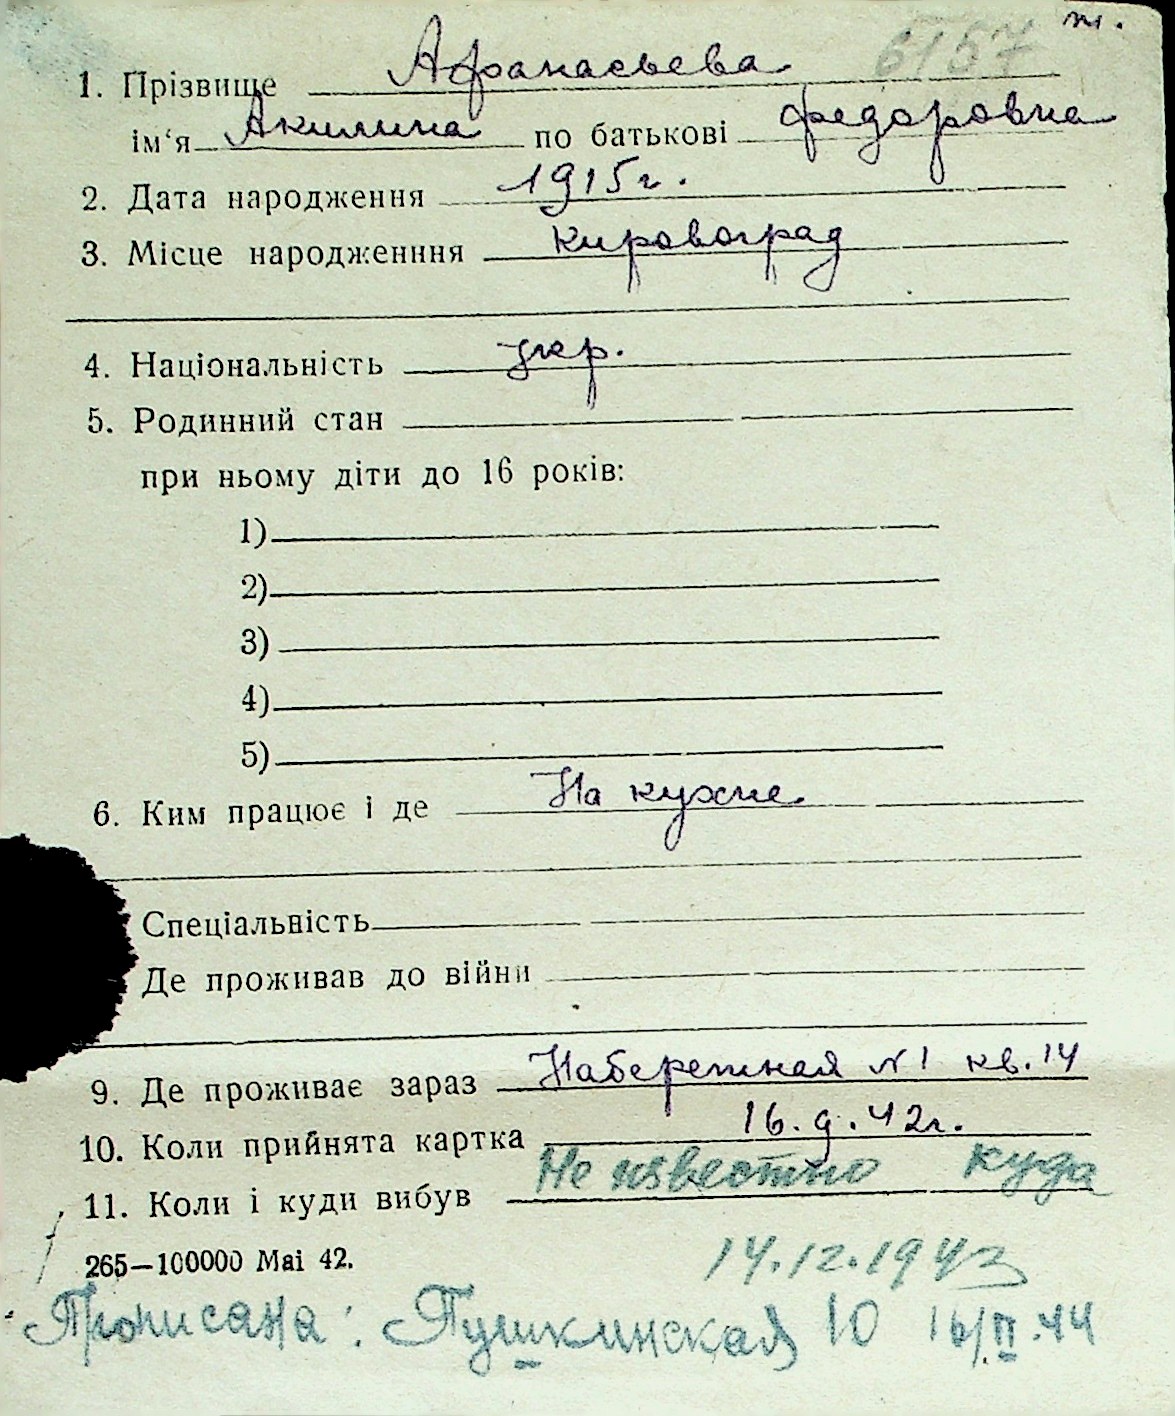 ж. 6157
1. Прізвище Афанасьева
ім'я Акилина по батькові Федоровна
2. Дата народження 1915г.
3. Місце народженння Кировоград
4. Національність укр.
5. Родинний стан
при ньому діти до 16 років:
1)
2)
3)
4)
5)
6. Ким працює і де На кухне
Спеціальність
Де проживав до війни
9. Де проживає зараз Набережная №1 кв. 14
10. Коли прийнята картка 16.9.42г.
11. Коли і куди вибув Не известно куда
265—100000 Mai 42. 14.12.1943
Прописана: Пушкинская 10 16/II.44